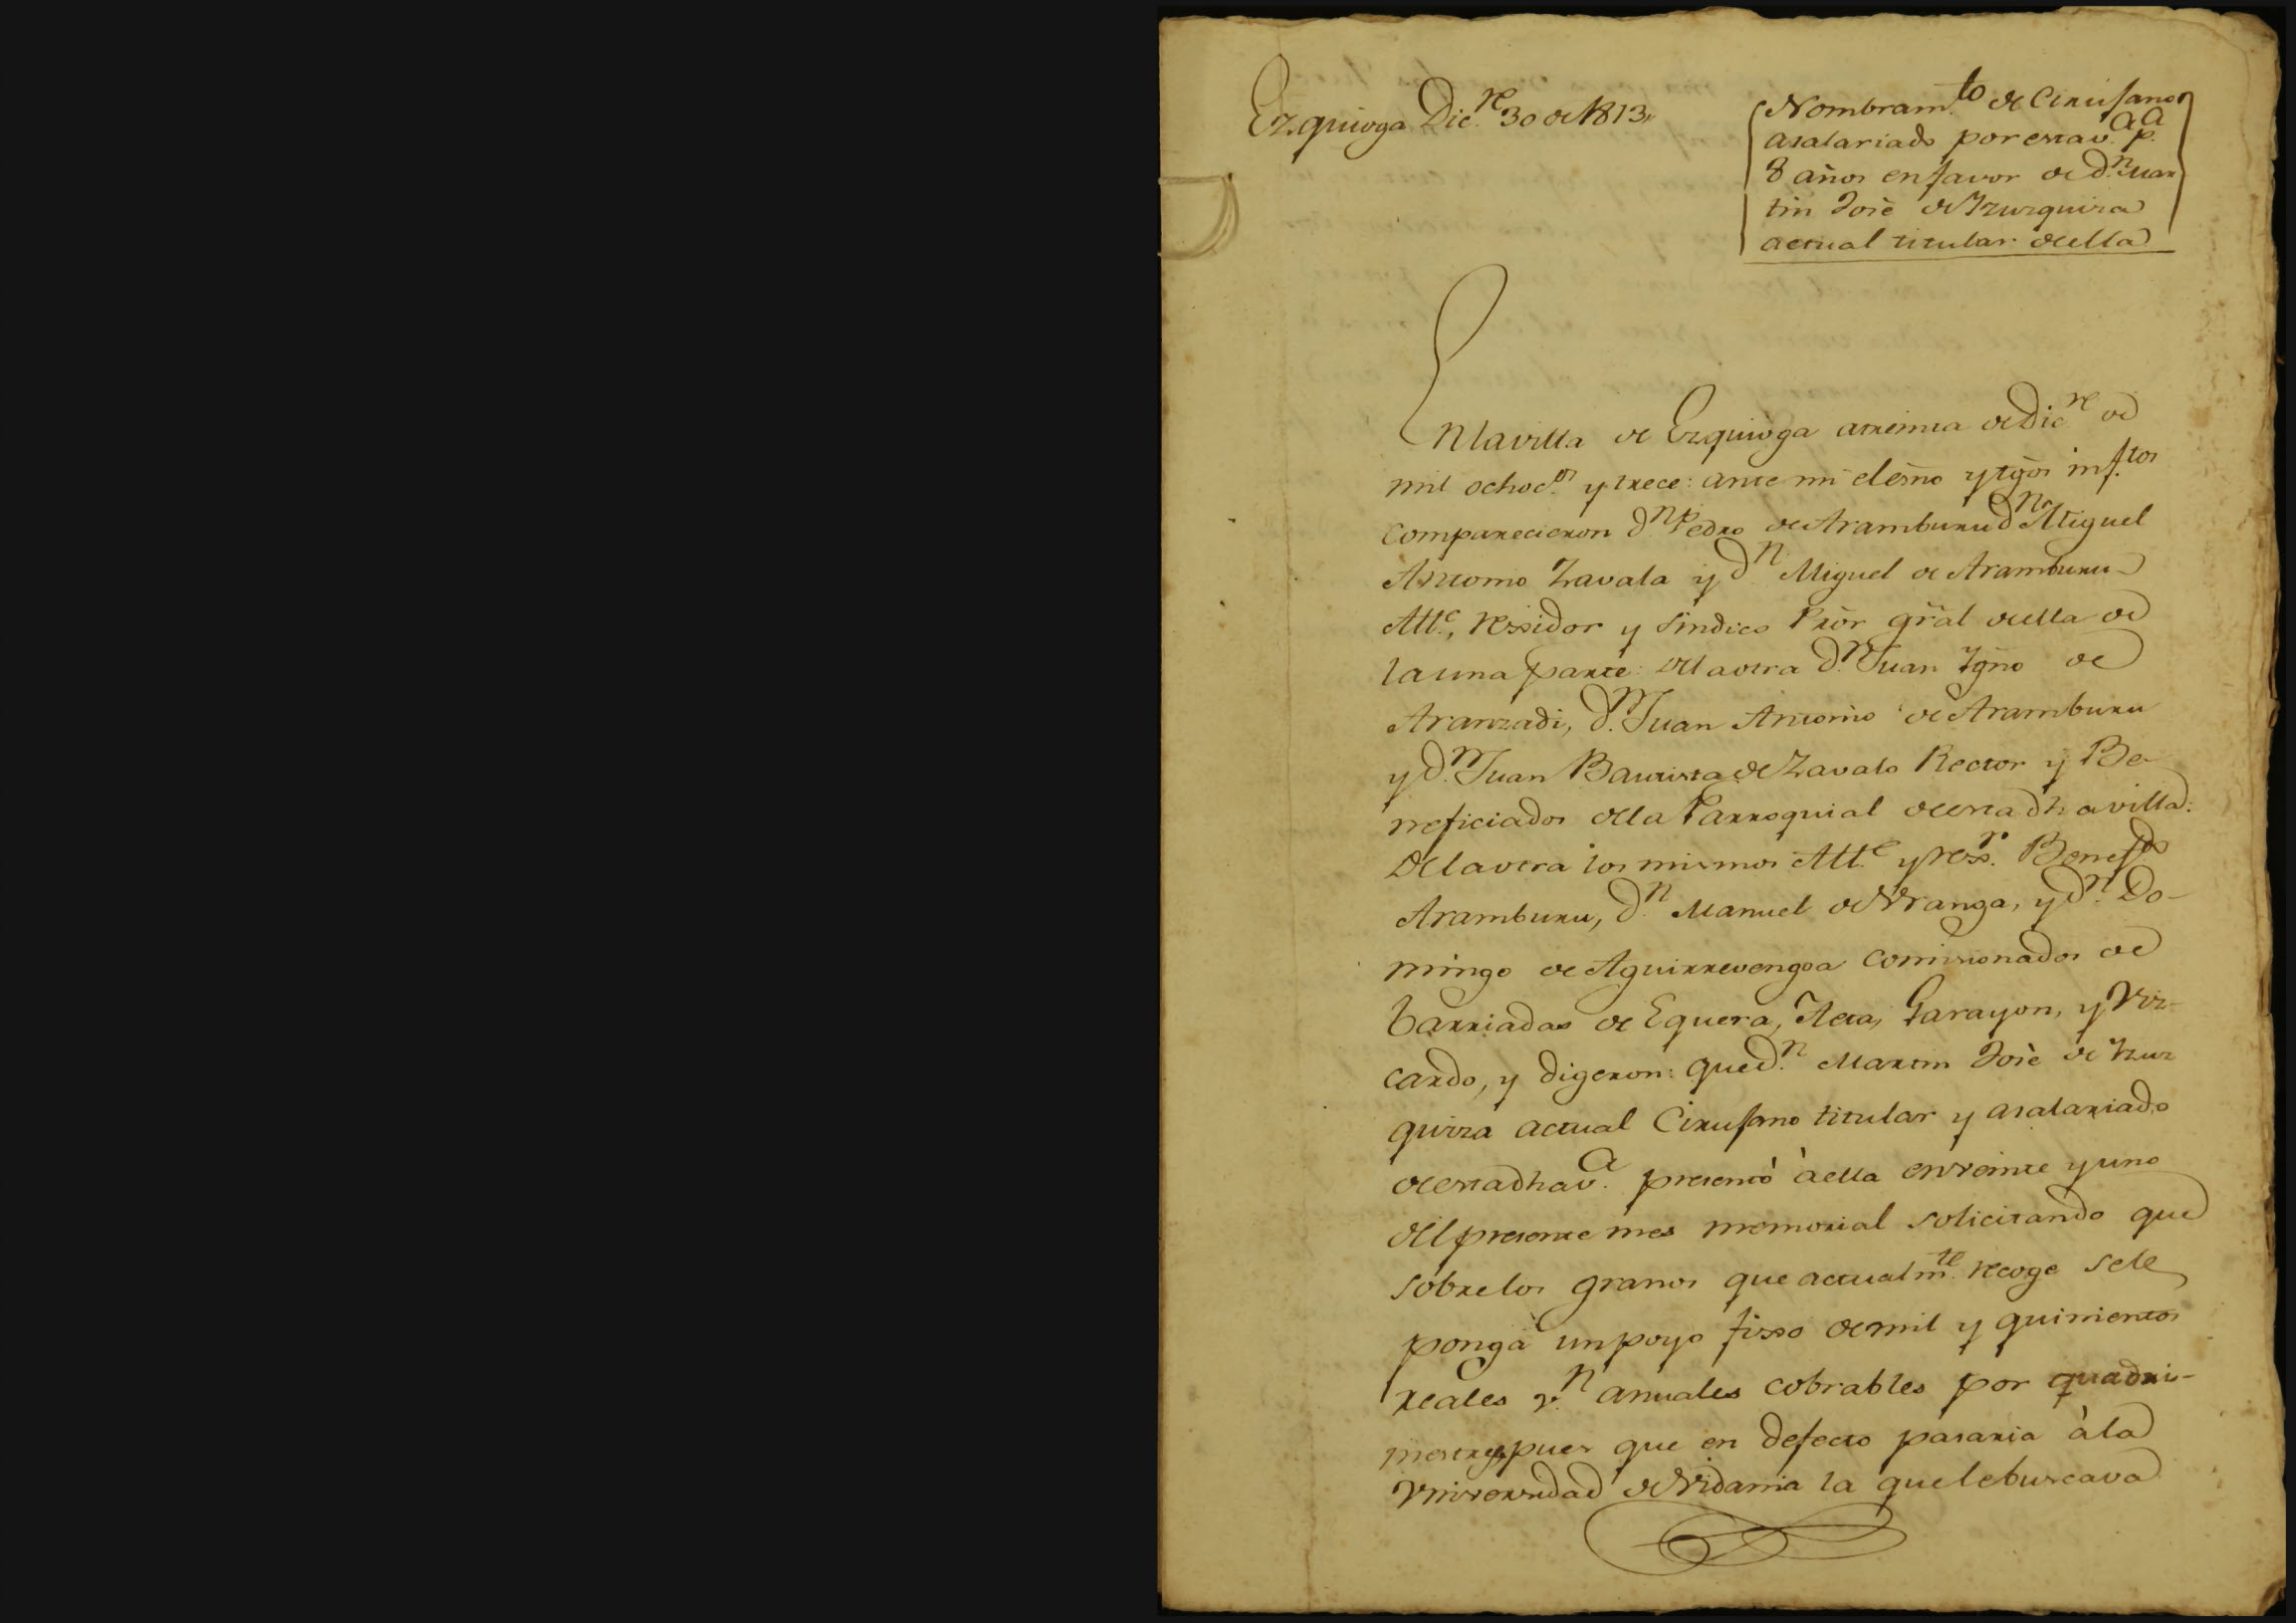 Ezquioga Dic.re 30 de 1813,,
Nombram.to de Cirujano
asalariado por esta v.a p.a
8 años en favor de d.n Mar
tin José de Yzuzquiza
actual titular de ella
En la villa de Ezquioga a treinta de Dic.re de
mil ochoc.os y trece: ante mi el esño y tgõs inf.tos
comparecieron d.n Pedro de Aramburu d.n Miguel
Antonio Zavala y d.n Miguel de Aramburu
Alt.e, rexidor y Sindico Prõr gr̃al de ella de
la una parte: de la otra d.n Juan Ygño de
Aranzadi, d.n Juan Antonio de Aramburu
y d.n Juan Bautista de Zavala Rector y Be-
neficiados de la Parroquial de esta dha villa:
de la otra los mismos Alt.e y rex.r Benef.do
Aramburu, d.n Manuel de Vranga, y d.n Do-
mingo de Aguirrevengoa comisionados de
barriadas de Eguera, Garayon, y Viz-
cardo, y digeron: que d.n Martin José de Yzuz
quiza actual Cirujano titular y asalariado
de esta dha v.a presentó à ella en veinte y uno
del presente mes memorial solicitando que
sobre los granos que actualm.te recoge se le
ponga un poyo fixo de mil y quinientos
reales v.n anuales cobrables por quadri-
mestres, pues que en defecto pasaria à la
Vniversidad de Vidania la que le buscava